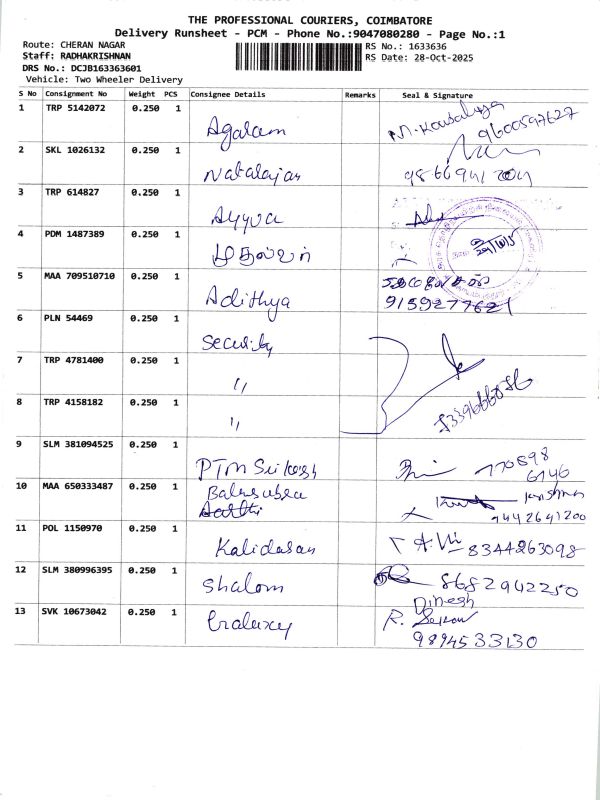 THE PROFESSIONAL COURIERS, COIMBATORE
Delivery Runsheet - PCM - Phone No.:9047080280 - Page No.:1
Route: CHERAN NAGAR RS No.: 1633636
Staff: RADHAKRISHNAN RS Date: 28-Oct-2025
DRS No.: DCJB163363601
Vehicle: Two Wheeler Delivery
S No Consignment No Weight PCS Consignee Details Remarks Seal & Signature
1 TRP 5142072 0.250 1 Agalam M. Kousalya 9600597627
2 SKL 1026132 0.250 1 Natalajan
3 TRP 614827 0.250 1 Ayyva
4 PDM 1487389 0.250 1 முதல்வர்
5 MAA 709510710 0.250 1 Adithya 9159277621
6 PLN 54469 0.250 1 Security
7 TRP 4781400 0.250 1 "
8 TRP 4158182 0.250 1 "
9 SLM 381094525 0.250 1 PTM 770898
6746
10 MAA 650333487 0.250 1 Balasubra Krishnan
Aarthi 9442641200
11 POL 1150970 0.250 1 Kalidasan 8344263098
12 SLM 380996395 0.250 1 Shalom 8682942250
Dinesh
13 SVK 10673042 0.250 1 Galaxy R.
9894533130